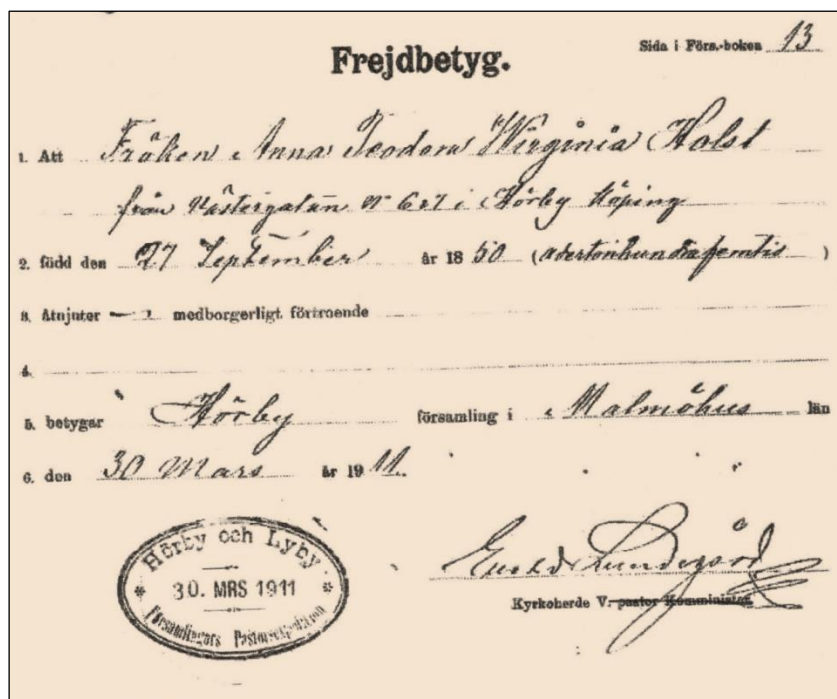 Frejdbetyg.
Sida i Förs.-boken 13
1. Att Fröken Anna Teodora Wirginia Holst
från Västergatan Nº 627 i Hörby Köping
2. född den 27 September år 1850 (adertonhundrafemtio)
3. Åtnjuter medborgerligt förtroende
4.
5. betygar Hörby församling i Malmöhus län
6. den 30 Mars år 1911.
Hörby och Lyby
30. MRS 1911
Församlingars Pastorsexpedition
Lundegård
Kyrkoherde V. pastor Komminister